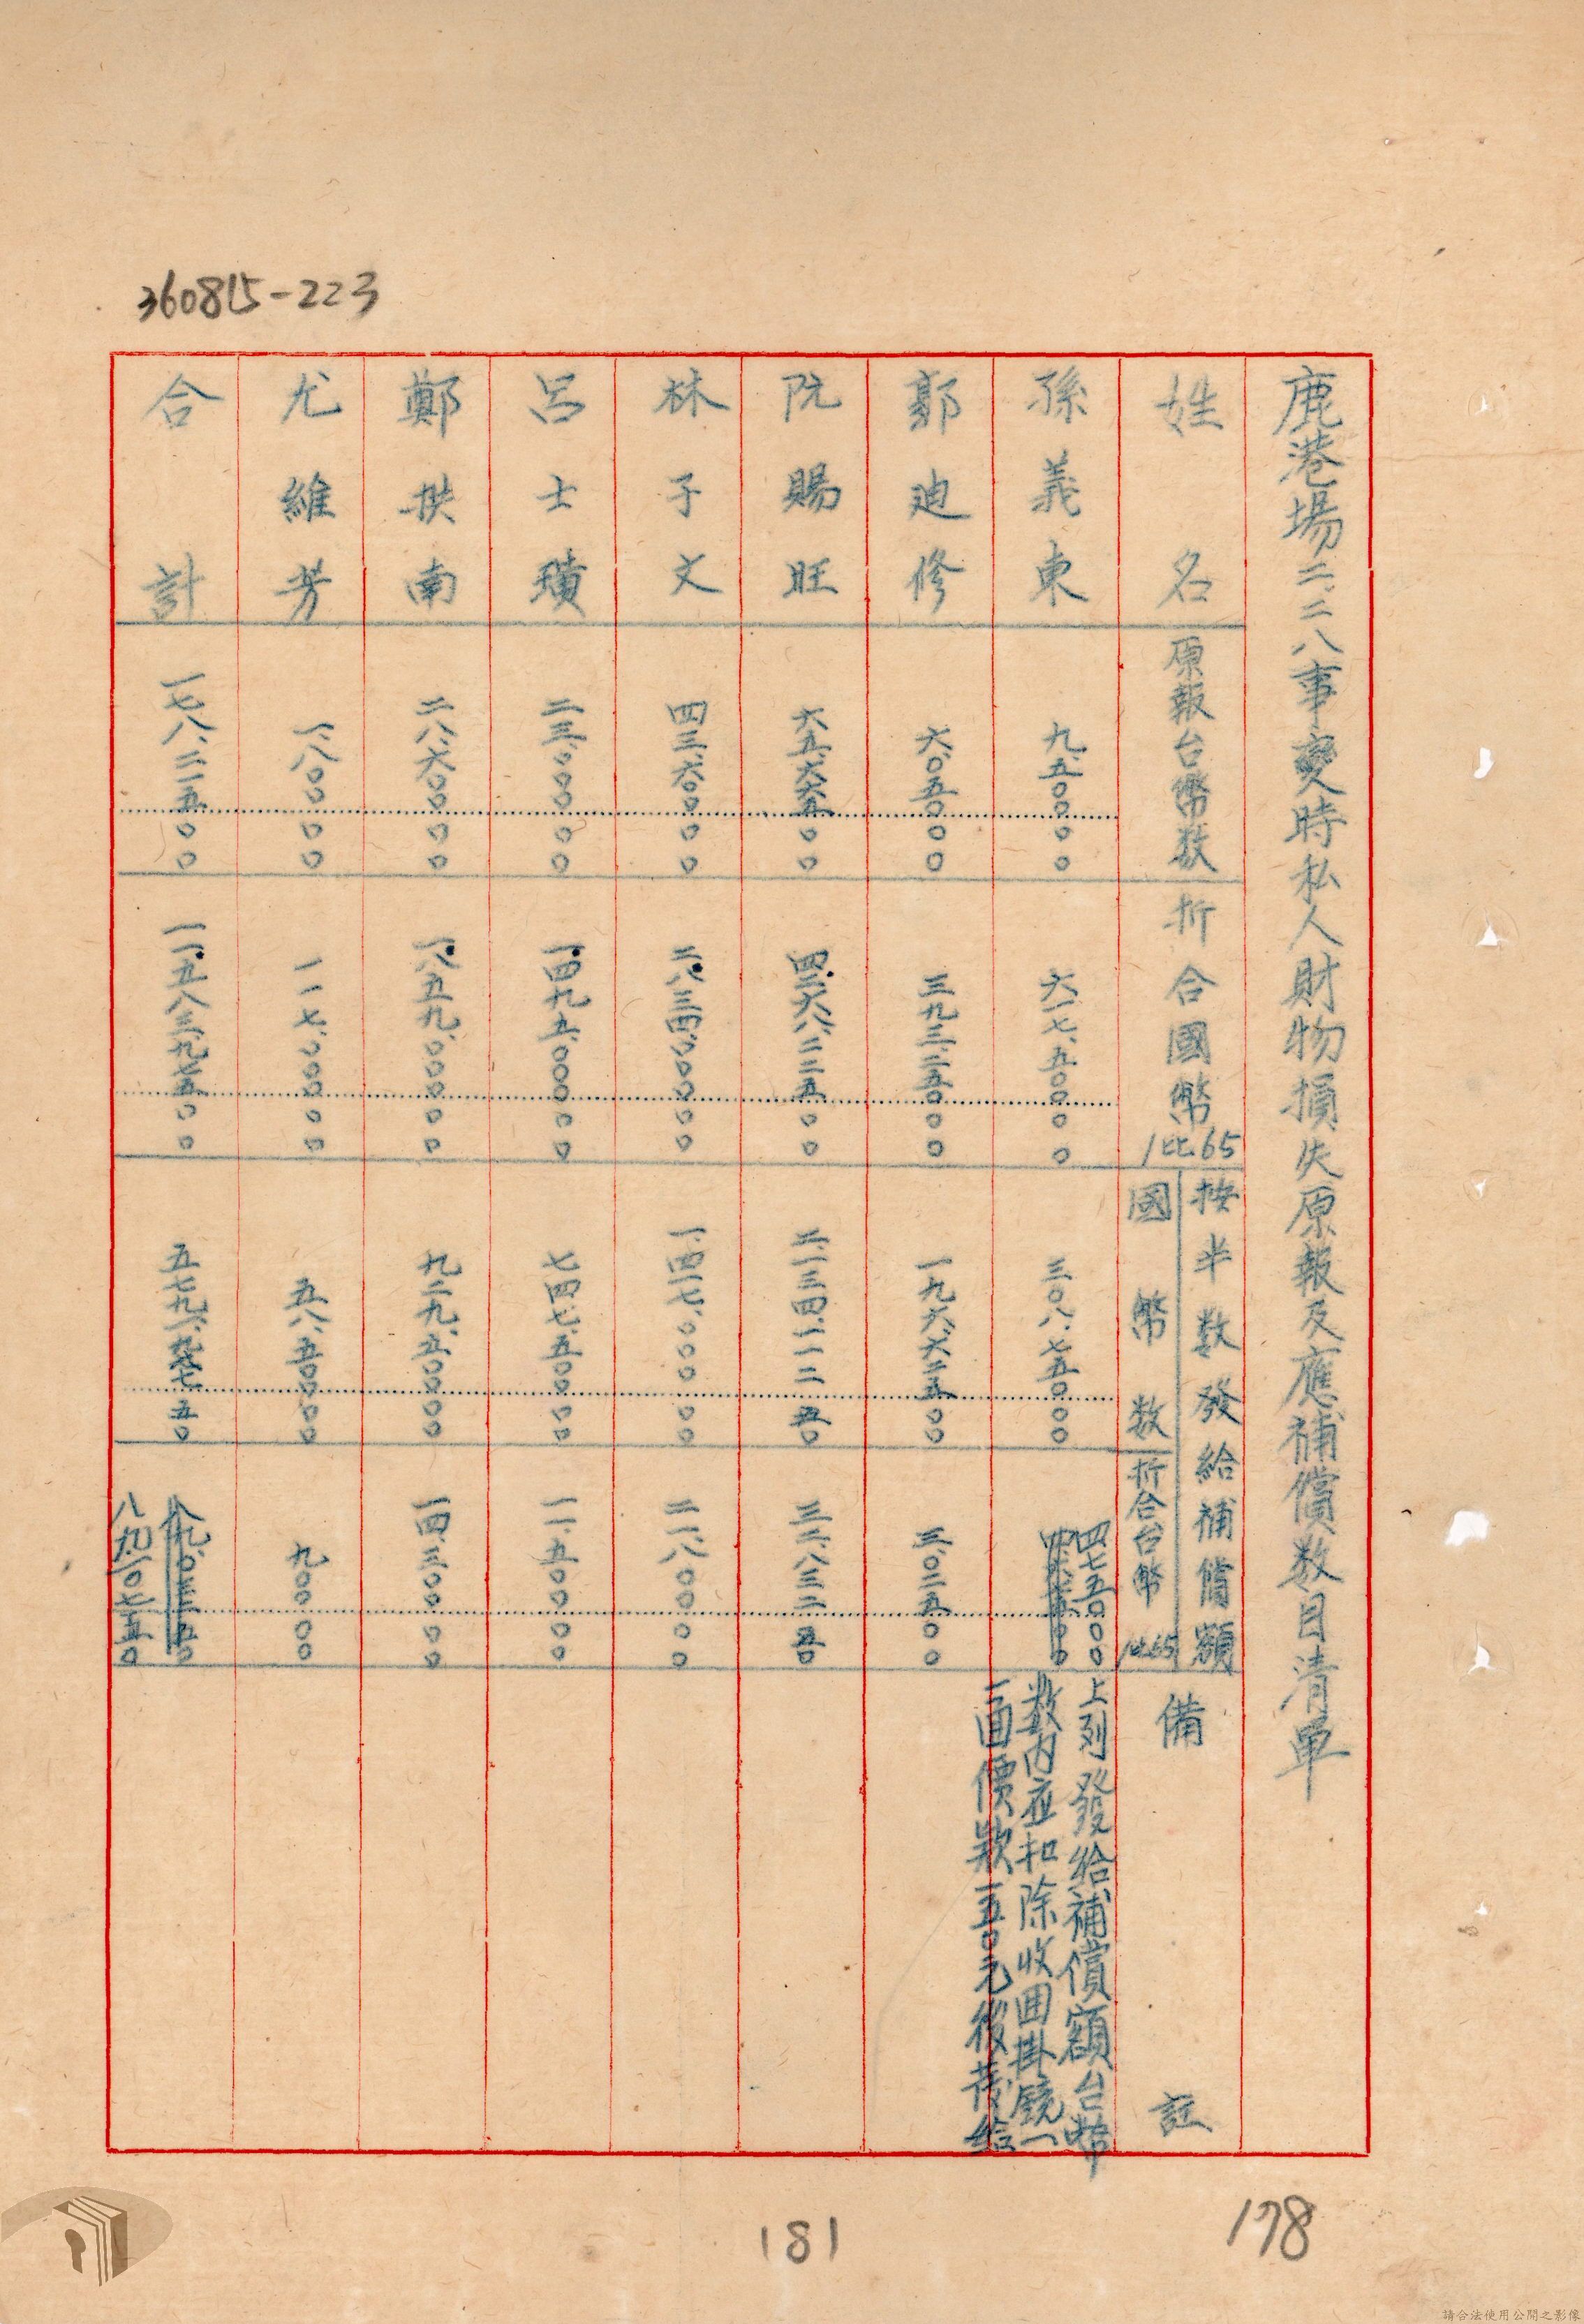 360815-223
鹿港場二、二八事變時私人財物損失原報及應補償数目清單
姓名
原報台幣数
折合國幣 1比65
按半数發給補償額
國幣数
折合台幣 1比65
備註
孫義東 九、五〇〇〇〇 六一七、五〇〇〇〇 三〇八、七五〇〇〇 四七五〇〇〇
上列發給補償額台幣
数內应扣除收囬掛鏡一
面價款一五〇元後發給
郭迪修 六、〇五〇〇〇 三九三、二五〇〇〇 一九六、六二五〇〇 三、〇二五〇〇
阮賜旺 六五、六六五〇〇 四、二六八、二二五〇〇 二、一三四、一一二五〇 三二、八三二五〇
林子文 四三、六〇〇〇〇 二、八三四、〇〇〇〇〇 一、四一七、〇〇〇〇〇 二一、八〇〇〇〇
呂士璜 二三、〇〇〇〇〇 一、四九五、〇〇〇〇〇 七四七、五〇〇〇〇 一一、五〇〇〇〇
鄭拱南 二八、六〇〇〇〇 一、八五九、〇〇〇〇〇 九二九、五〇〇〇〇 一四、三〇〇〇〇
尤維芳 一、八〇〇〇〇 一一七、〇〇〇〇〇 五八、五〇〇〇〇 九〇〇〇〇
合計 一七八、二一五〇〇 一一、五八三、九七五〇〇 八九、一〇七五〇
181
178
請合法使用公開之影像